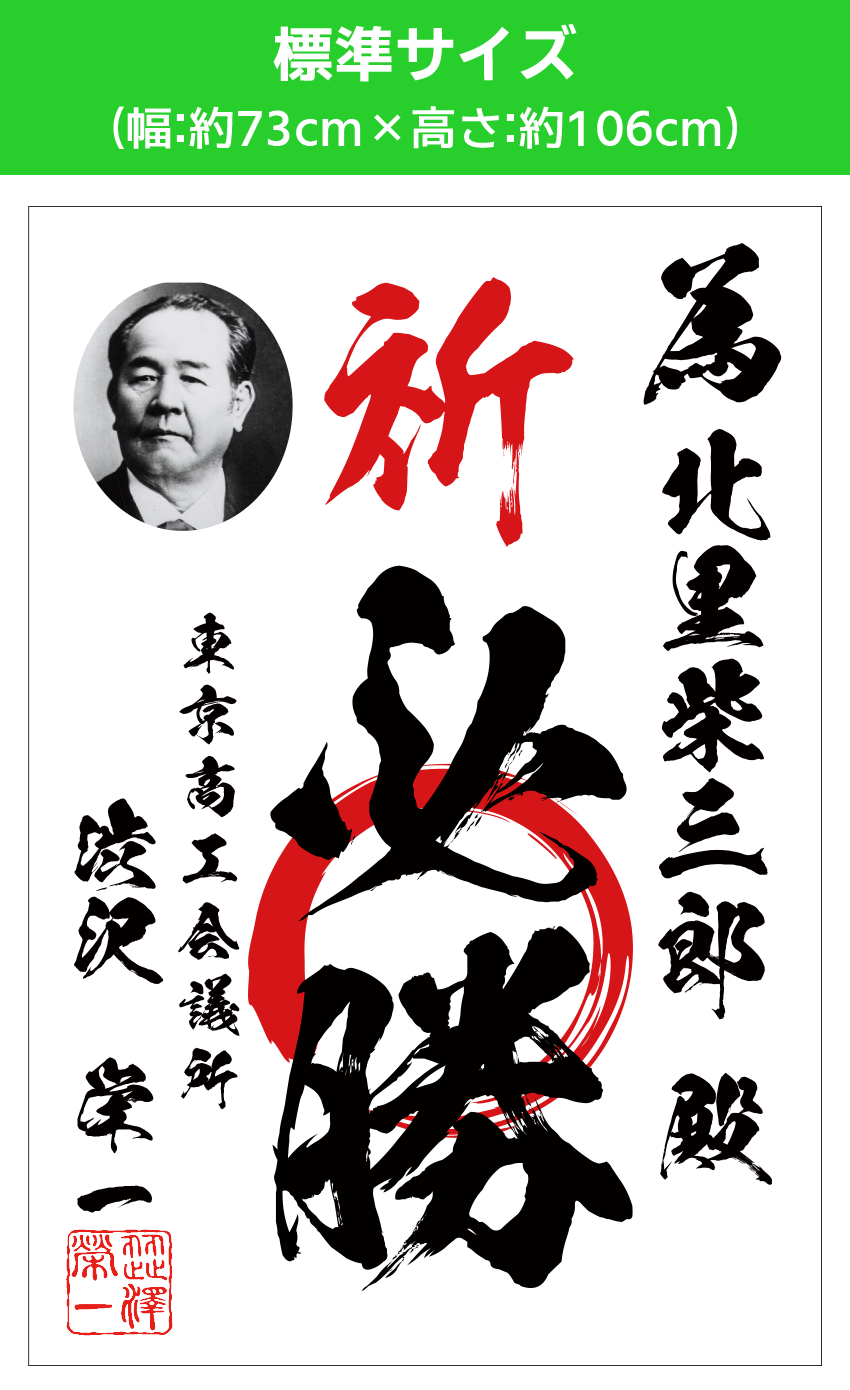 標準サイズ
(幅:約73cm×高さ:約106cm)
為 北里柴三郎 殿
祈
必勝
東京高工会議所
渋沢 栄一
澁澤
榮一